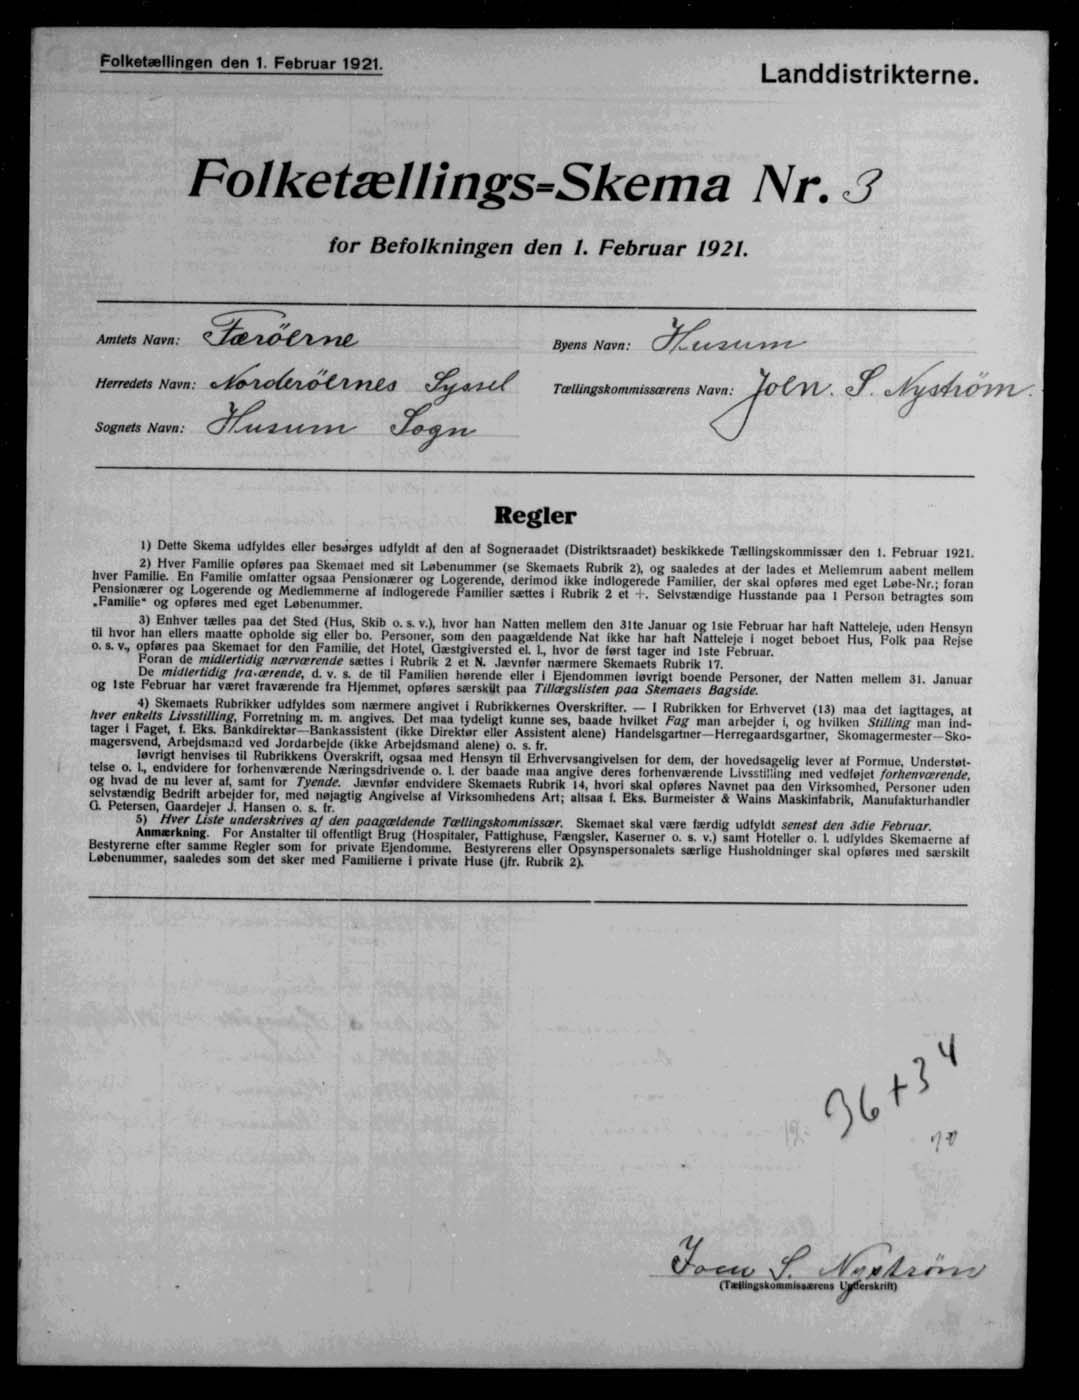 Folketællingen den 1. Februar 1921.
Landdistrikterne.
Folketællings=Skema Nr. 3
for Befolkningen den 1. Februar 1921.
Amtets Navn: Færöerne
Byens Navn: Husum
Herredets Navn: Norderöernes Syssel
Tællingskommissærens Navn: Joen. S. Nyström.
Sognets Navn: Husum Sogn
Regler
1) Dette Skema udfyldes eller besørges udfyldt af den af Sogneraadet (Distriktsraadet) beskikkede Tællingskommissær den 1. Februar 1921.
2) Hver Familie opføres paa Skemaet med sit Løbenummer (se Skemaets Rubrik 2), og saaledes at der lades et Mellemrum aabent mellem
hver Familie. En Familie omfatter ogsaa Pensionærer og Logerende, derimod ikke indlogerede Familier, der skal opføres med eget Løbe-Nr.; foran
Pensionærer og Logerende og Medlemmerne af indlogerede Familier sættes i Rubrik 2 et +. Selvstændige Husstande paa 1 Person betragtes som
„Familie“ og opføres med eget Løbenummer.
3) Enhver tælles paa det Sted (Hus, Skib o. s. v.), hvor han Natten mellem den 31te Januar og 1ste Februar har haft Natteleje, uden Hensyn
til hvor han ellers maatte opholde sig eller bo. Personer, som den paagældende Nat ikke har haft Natteleje i noget beboet Hus, Folk paa Rejse
o. s. v., opføres paa Skemaet for den Familie, det Hotel, Gæstgiversted el. l., hvor de først tager ind 1ste Februar.
Foran de midlertidig nærværende sættes i Rubrik 2 et N. Jævnfør nærmere Skemaets Rubrik 17.
De midlertidig fraværende, d. v. s. de til Familien hørende eller i Ejendommen iøvrigt boende Personer, der Natten mellem 31. Januar
og 1ste Februar har været fraværende fra Hjemmet, opføres særskilt paa Tillægslisten paa Skemaets Bagside.
4) Skemaets Rubrikker udfyldes som nærmere angivet i Rubrikkernes Overskrifter. — I Rubrikken for Erhvervet (13) maa det iagttages, at
hver enkelts Livsstilling, Forretning m. m. angives. Det maa tydeligt kunne ses, baade hvilket Fag man arbejder i, og hvilken Stilling man ind-
tager i Faget, f. Eks. Bankdirektør—Bankassistent (ikke Direktør eller Assistent alene) Handelsgartner—Herregaardsgartner, Skomagermester—Sko-
magersvend, Arbejdsmand ved Jordarbejde (ikke Arbejdsmand alene) o. s. fr.
Iøvrigt henvises til Rubrikkens Overskrift, ogsaa med Hensyn til Erhvervsangivelsen for dem, der hovedsagelig lever af Formue, Understøt-
telse o. l., endvidere for forhenværende Næringsdrivende o. l. der baade maa angive deres forhenværende Livsstilling med vedføjet forhenværende,
og hvad de nu lever af, samt for Tyende. Jævnfør endvidere Skemaets Rubrik 14, hvori skal opføres Navnet paa den Virksomhed, Personer uden
selvstændig Bedrift arbejder for, med nøjagtig Angivelse af Virksomhedens Art; altsaa f. Eks. Burmeister & Wains Maskinfabrik, Manufakturhandler
G. Petersen, Gaardejer J. Hansen o. s. fr.
5) Hver Liste underskrives af den paagældende Tællingskommissær. Skemaet skal være færdig udfyldt senest den 3die Februar.
Anmærkning. For Anstalter til offentligt Brug (Hospitaler, Fattighuse, Fængsler, Kaserner o. s. v.) samt Hoteller o. l. udfyldes Skemaerne af
Bestyrerne efter samme Regler som for private Ejendomme. Bestyrerens eller Opsynspersonalets særlige Husholdninger skal opføres med særskilt
Løbenummer, saaledes som det sker med Familierne i private Huse (jfr. Rubrik 2).
36+34
70
Joen S. Nyström
(Tællingskommissærens Underskrift)